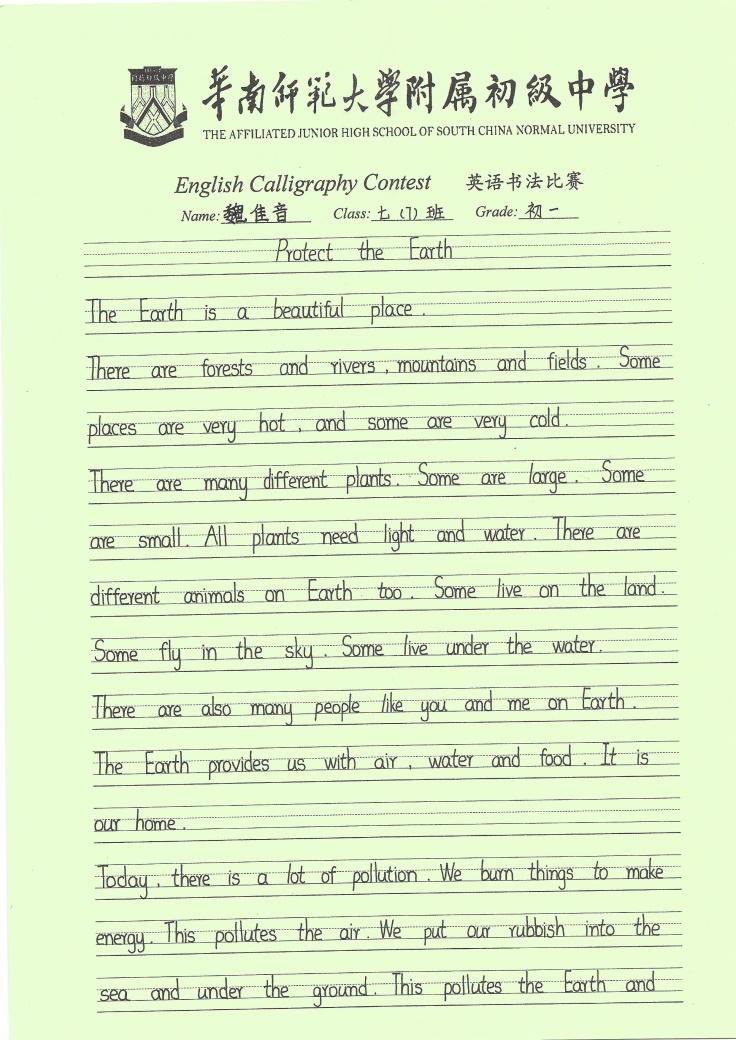 華南师範大學附属初級中學
THE AFFILIATED JUNIOR HIGH SCHOOL OF SOUTH CHINA NORMAL UNIVERSITY
English Calligraphy Contest 英语书法比赛
Name: 魏佳音 Class: 七(7)班 Grade: 初一
Protect the Earth
The Earth is a beautiful place.
There are forests and rivers, mountains and fields. Some
places are very hot, and some are very cold.
There are many different plants. Some are large. Some
are small. All plants need light and water. There are
different animals on Earth too. Some live on the land.
Some fly in the sky. Some live under the water.
There are also many people like you and me on Earth.
The Earth provides us with air, water and food. It is
our home.
Today, there is a lot of pollution. We burn things to make
energy. This pollutes the air. We put our rubbish into the
sea and under the ground. This pollutes the Earth and